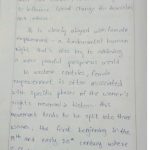 to influence social change for themselves
and others.
It is closely aligned with female
empowerment - a fundamental human
right that's also key to achieving
a more peaceful, prosperous world
In western countries, female
empowerment is often associated
with specific phases of the women's
rights movement in history. This
movement tends to be split into three
waves, the first beginning in the
19th and early 20th century where